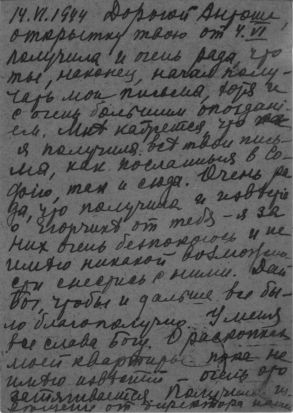 14.VI.1944 Дорогой Антоша,
открытку твою от 4.VI
получила и очень рада, что
ты, наконец, начал полу-
чать мои письма, хотя и
с очень большим опоздани-
ем. Мне кажется, что
я получила все твои пись-
ма, как посланныя в Со-
фию, так и сюда. Очень ра-
да, что получила и известие
о Егорчике от тебя - я за
них очень безпокоюсь и не
имею никакой возможно-
сти снестись с ними. Дай
Бог, чтобы и дальше все бы-
ло благополучно. У меня
все слава Богу. О раскопках
моей квартиры пока не
имею известий - очень это
затягивается. Получила и
от директора